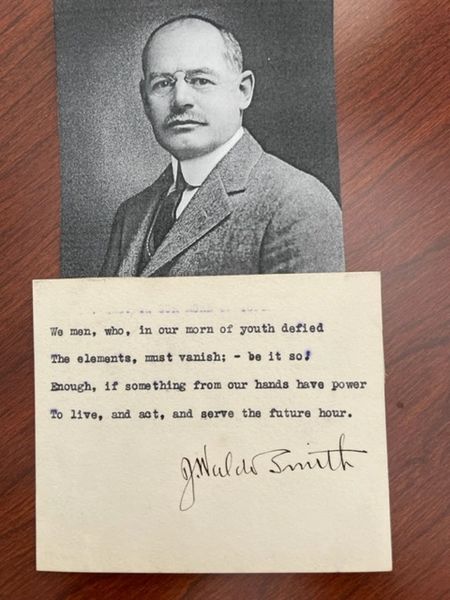 We men, who, in our morn of youth defied
The elements, must vanish; - be it so!
Enough, if something from our hands have power
To live, and act, and serve the future hour.
J. Waldo Smith